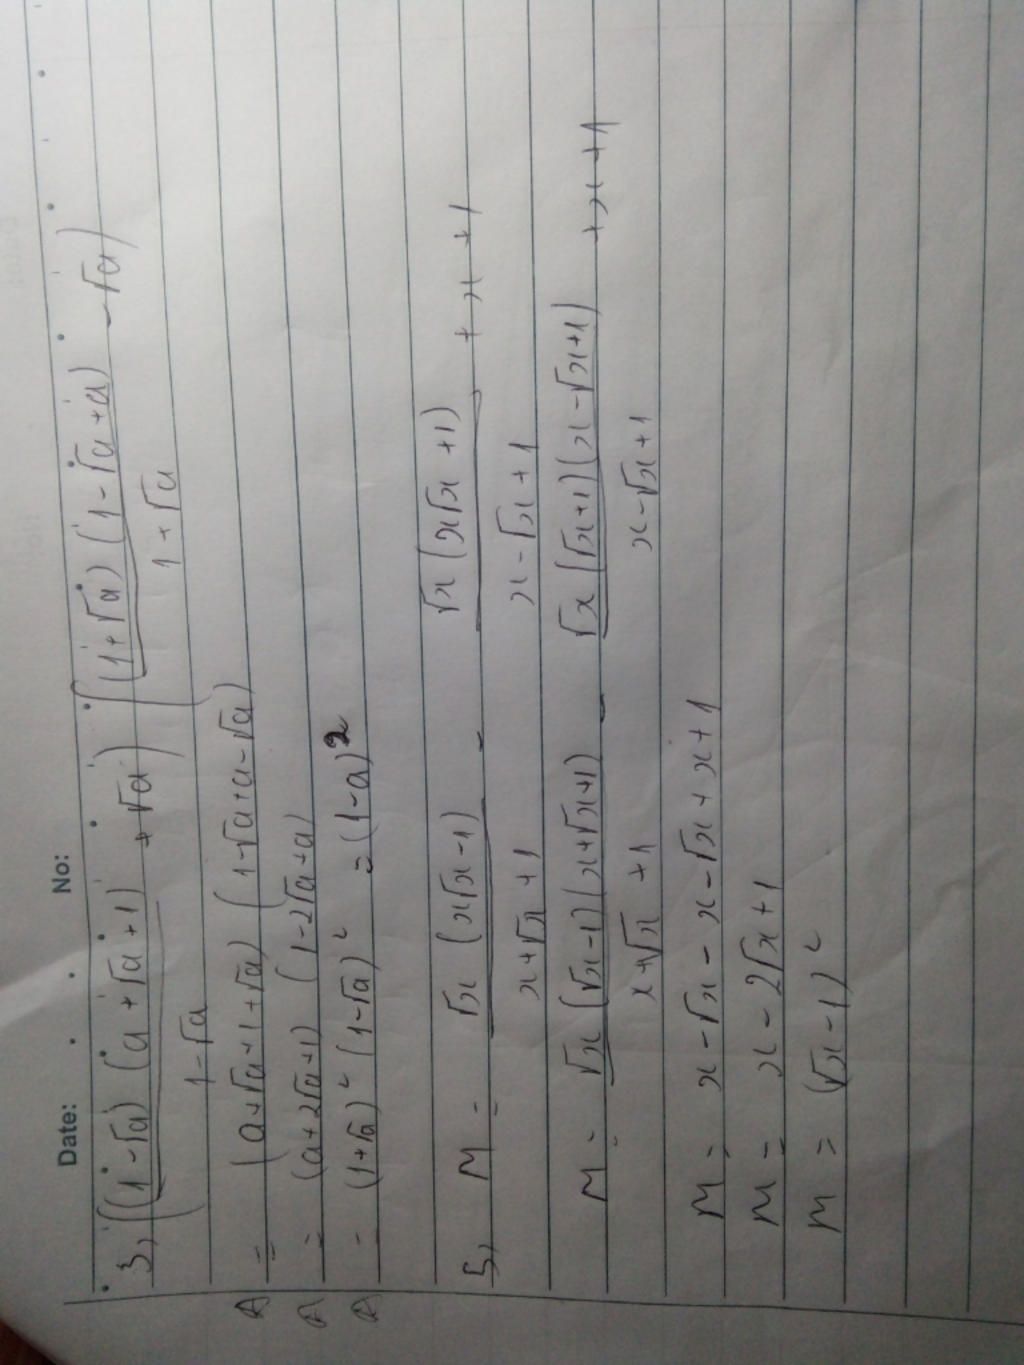 Date: No:
3, ((1-√a)(a+√a+1)/(1-√a) + √a) ((1+√a)(1-√a+a)/(1+√a) - √a)
A = (a+√a+1+√a) (1-√a+a-√a)
A = (a+2√a+1) (1-2√a+a)
A = (1+√a)² (1-√a)² = (1-a)²
5, M = √x (x√x-1)/(x+√x+1) - √x (x√x+1)/(x-√x+1) + x + 1
M = √x (√x-1)(x+√x+1)/(x+√x+1) - √x (√x+1)(x-√x+1)/(x-√x+1) + x + 1
M = x-√x-x-√x+x+1
M = x-2√x+1
M = (√x-1)²